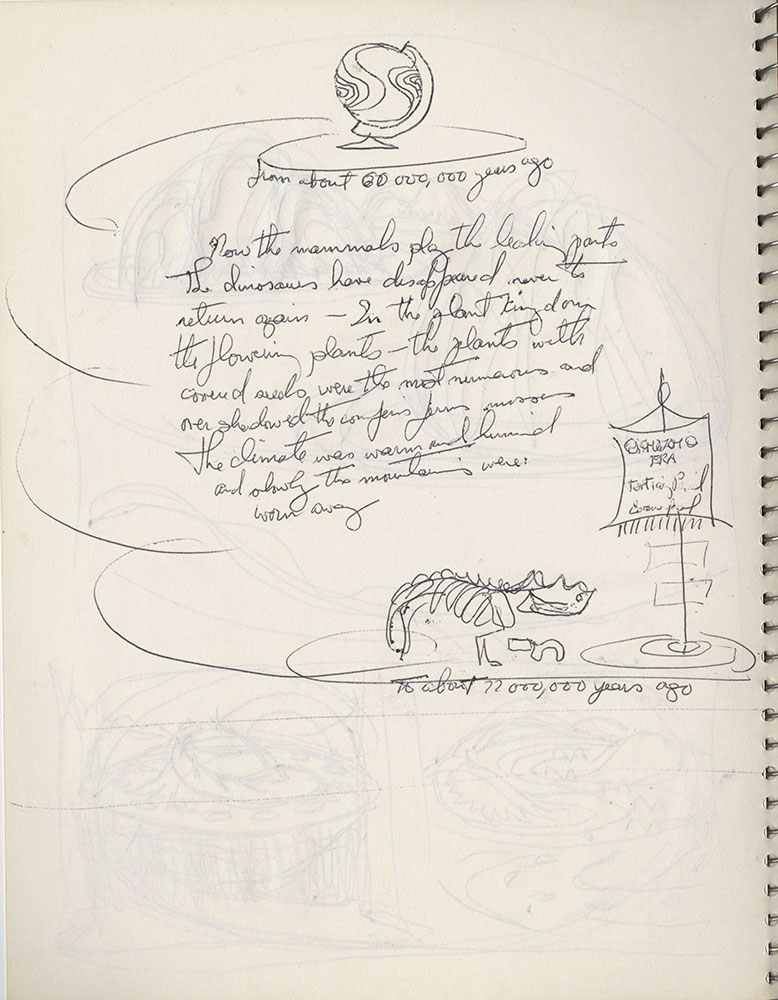 from about 60 000,000 years ago
Now the mammals play the leading parts
The dinosaurs have disappeared never to
return again — In the plant kingdom
the flowering plants — the plants with
covered seeds, were the most numerous and
over shadowed the conifers ferns mosses
The climate was warm and humid
and slowly the mountains were:
worn away
ERA
to about 22 000,000 years ago